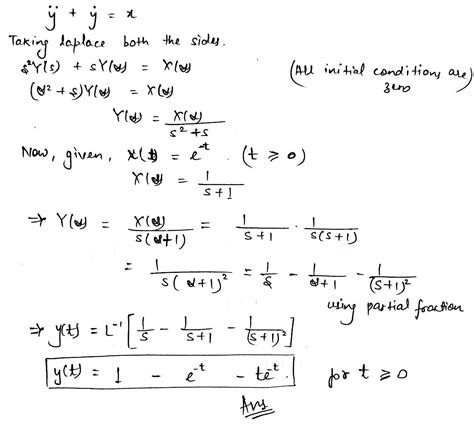 ÿ + ẏ = x
Taking laplace both the sides.
s²Y(s) + sY(s) = X(s) (All initial conditions are zero)
(s² + s)Y(s) = X(s)
Y(s) = X(s) / (s² + s)
Now, given, x(t) = e^-t (t ≥ 0)
X(s) = 1 / (s+1)
⇒ Y(s) = X(s) / (s(s+1)) = 1 / (s+1) · 1 / (s(s+1))
= 1 / (s(s+1)²) = 1/s - 1/(s+1) - 1/(s+1)²
using partial fraction
⇒ y(t) = L⁻¹ [1/s - 1/(s+1) - 1/(s+1)²]
y(t) = 1 - e^-t - te^-t. for t ≥ 0
Ans